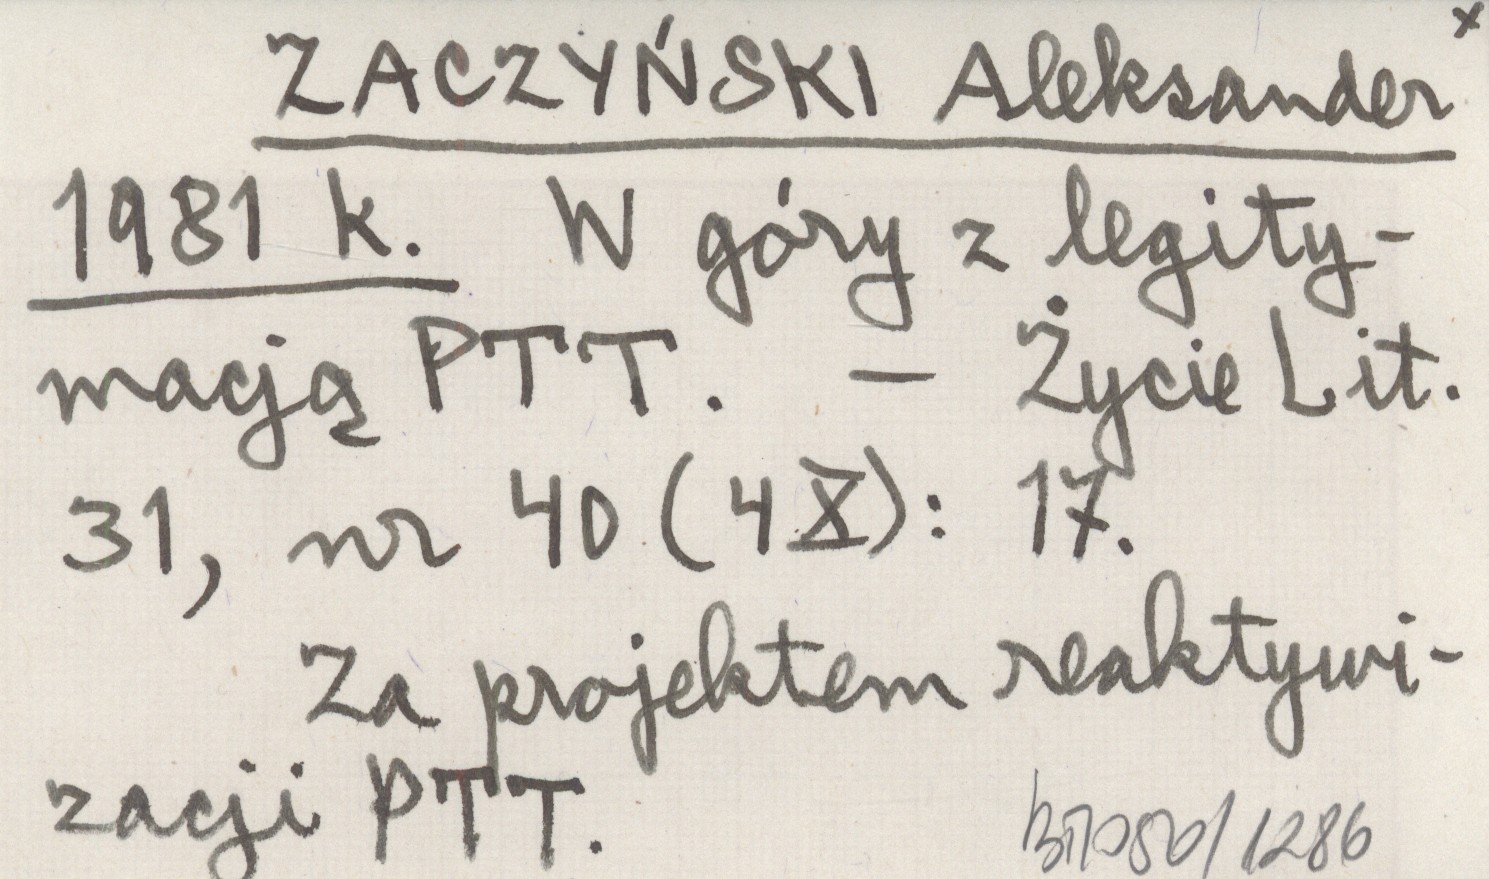 x
ZACZYŃSKI Aleksander
1981 k. W góry z legity-
macją PTT. — Życie Lit.
31, nr 40 (4 X): 17.
Za projektem reaktywi-
zacji PTT.
/1286